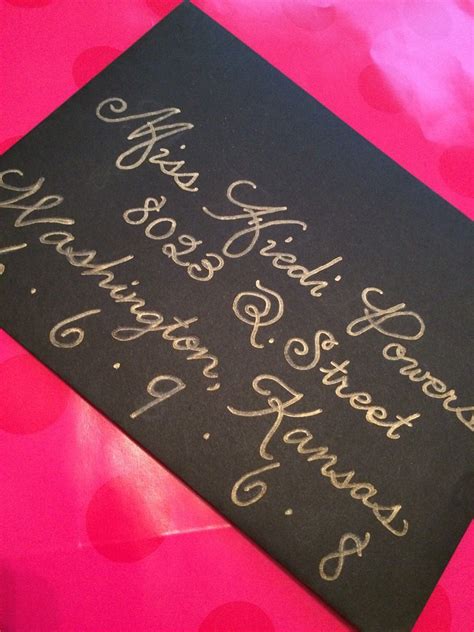 Miss Hiedi Powers
8023 Q. Street
Washington, Kansas
6 . 6 . 9 . 6 . 8